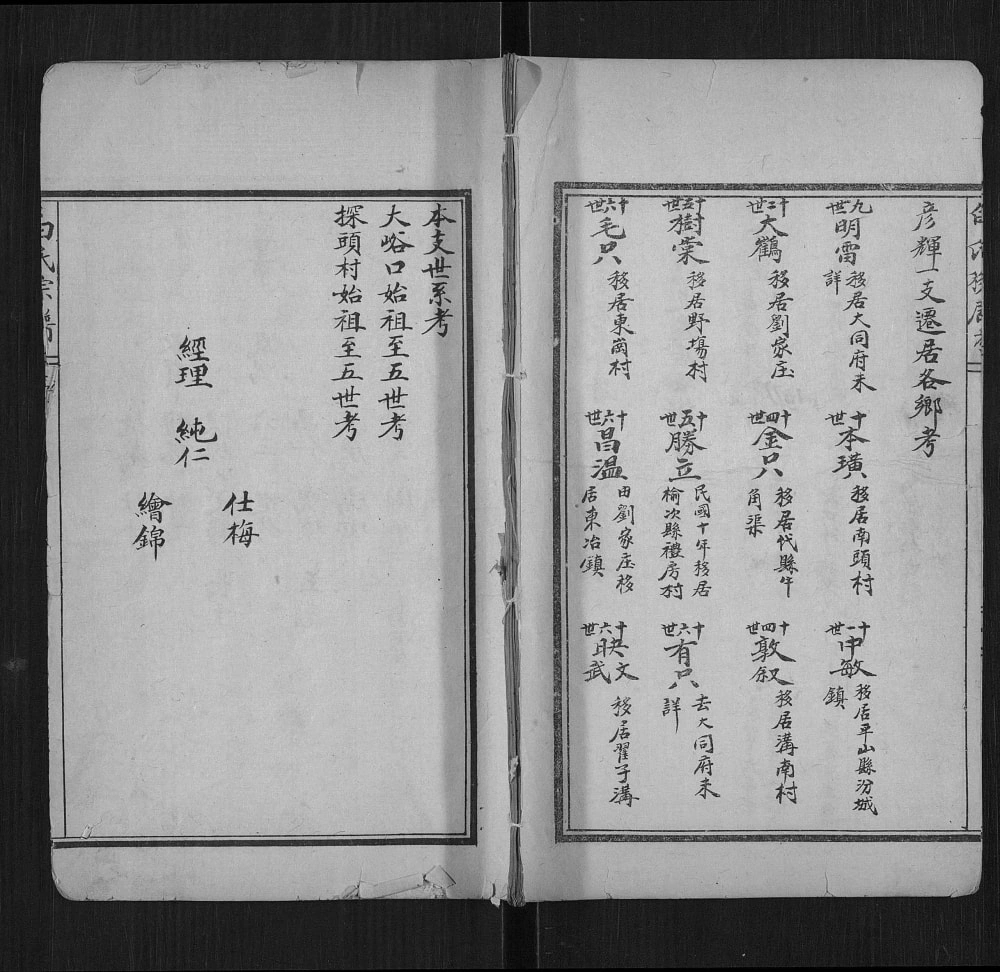 彦輝一支遷居各鄉考
九世 明雷 移居大同府未詳
十世 本璜 移居南頭村
十一世 中敏 移居平山縣汾城鎮
十二世 大鶴 移居劉家庄
十四世 金只 移居代縣牛角渠
十四世 敦叙 移居溝南村
十五世 樹棠 移居野場村
十五世 勝立 民國十年移居榆次縣禮房村
十六世 有只 去大同府未詳
十六世 毛只 移居東崗村
十六世 昌溫 由劉家庄移居東冶鎮
十六世 文 武 移居翟子溝
本支世系考
大峪口始祖至五世考
探頭村始祖至五世考
仕梅
經理 純仁
繪錦
白氏宗譜